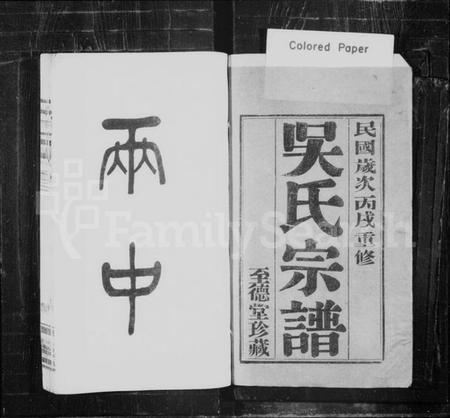 Colored Paper
民國歲次丙戌重修
吳氏宗譜
至德堂珍藏
兩中
FamilySearch